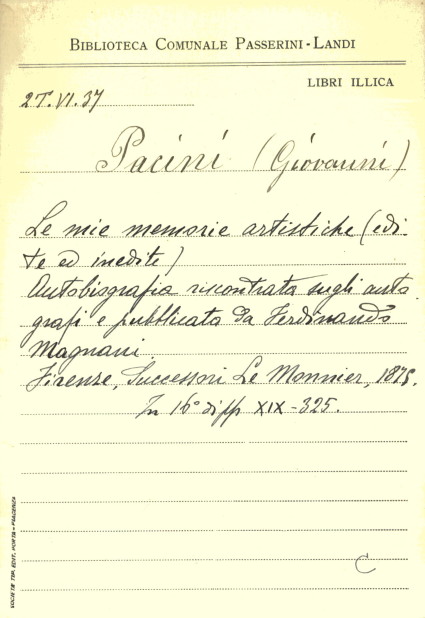 BIBLIOTECA COMUNALE PASSERINI-LANDI
LIBRI ILLICA
2T.VI.37
Pacini (Giovanni)
Le mie memorie artistiche (edi-
te ed inedite)
Autobiografia riscontrata sugli auto
grafi e pubblicata da Ferdinando
Magnani.
Firenze, Successori Le Monnier, 1875.
In 16° di pp XIX-325.
C
SOCIETÀ TIP. EDIT. PORTA - PIACENZA